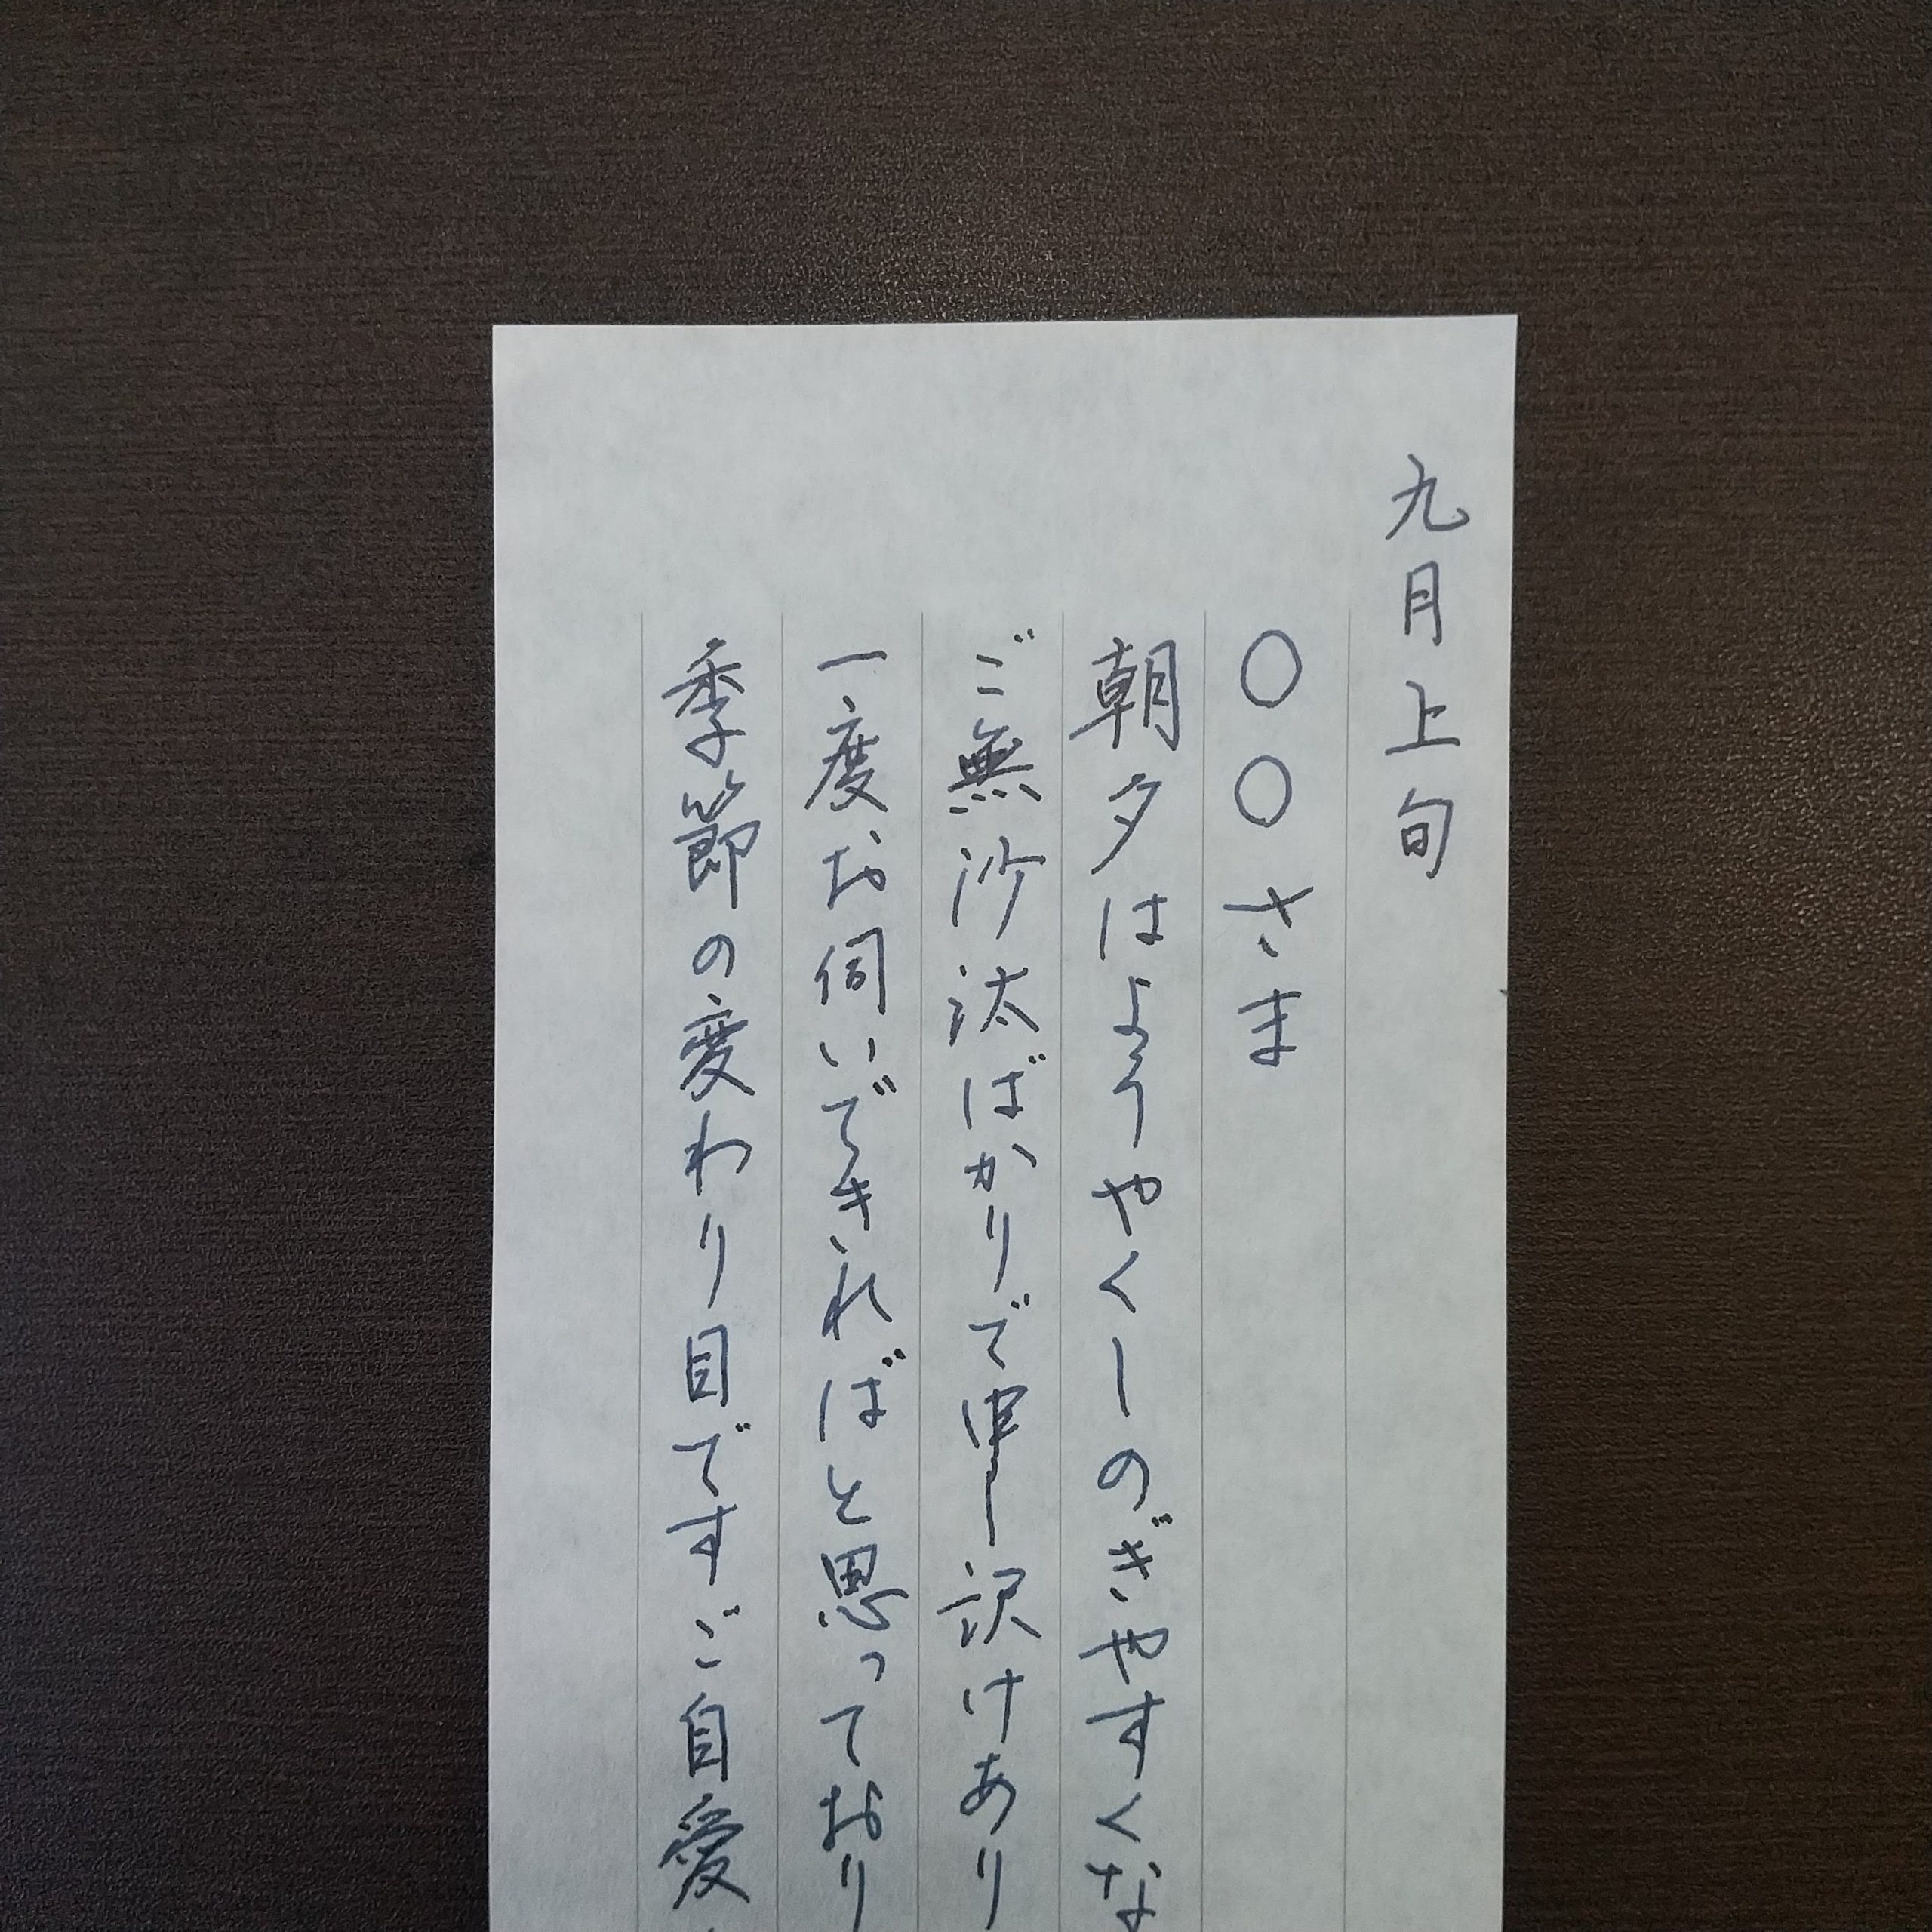 九月上旬
〇〇さま
朝夕はようやくしのぎやすくな
ご無沙汰ばかりで申し訳けあり
一度お伺いできればと思っており
季節の変わり目ですご自愛